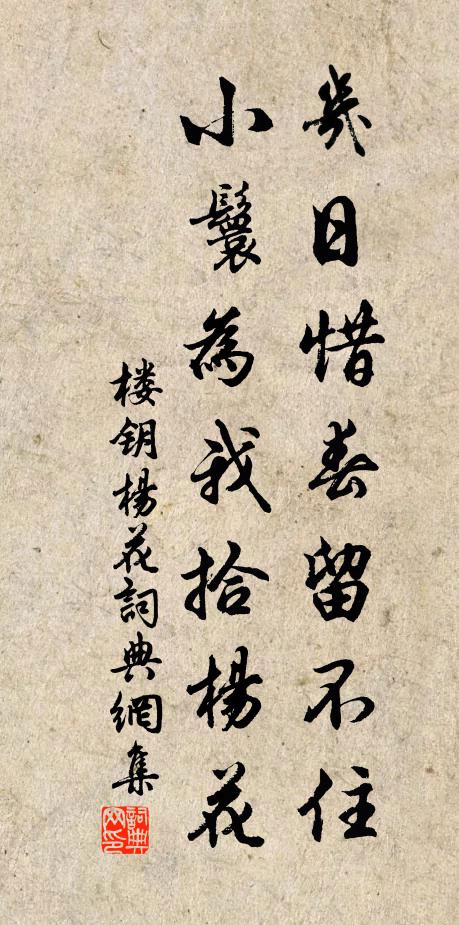 幾日惜春留不住
小鬟為我拾楊花
楼钥楊花詞典網集
詞典
网印